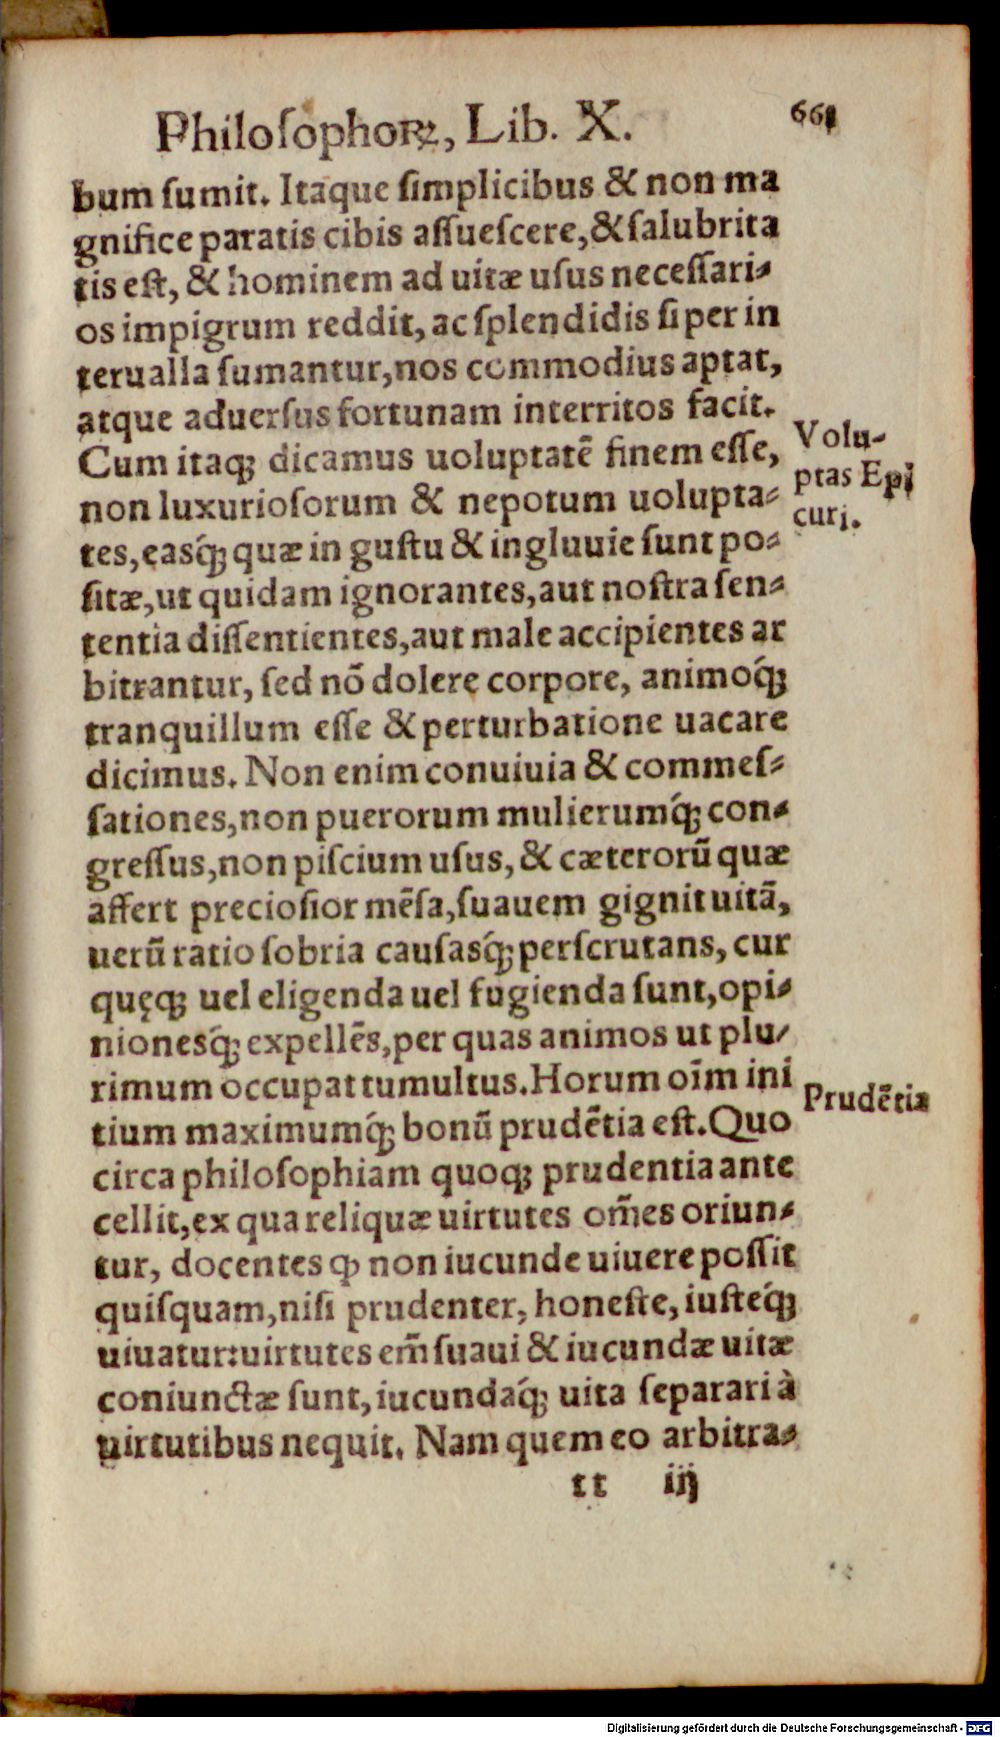 Philoſophoꝝ, Lib. X. 661
bum ſumit. Itaque ſimplicibus & non ma
gnifice paratis cibis aſſueſcere, & ſalubrita
tis eſt, & hominem ad uitæ uſus neceſſari-
os impigrum reddit, ac ſplendidis ſi per in
terualla ſumantur, nos commodius aptat,
atque aduerſus fortunam interritos facit.
Cum itaqꝫ dicamus uoluptatẽ finem eſſe,
non luxurioſorum & nepotum uolupta-
tes, easq́ꝫ quæ in guſtu & ingluuie ſunt po-
ſitæ, ut quidam ignorantes, aut noſtra ſen-
tentia diſſentientes, aut male accipientes ar
bitrantur, ſed nõ dolere corpore, animoq́ꝫ
tranquillum eſſe & perturbatione uacare
dicimus. Non enim conuiuia & commeſ-
ſationes, non puerorum mulierumq́ꝫ con-
greſſus, non piſcium uſus, & cæterorũ quæ
affert precioſior mẽſa, ſuauem gignit uitã,
uerũ ratio ſobria cauſasq́ꝫ perſcrutans, cur
quęqꝫ uel eligenda uel fugienda ſunt, opi-
nionesq́ꝫ expellẽs, per quas animos ut plu-
rimum occupat tumultus. Horum oĩm ini
tium maximumq́ꝫ bonũ prudẽtia eſt. Quo
circa philoſophiam quoqꝫ prudentia ante
cellit, ex qua reliquæ uirtutes om̃es oriun-
tur, docentes ꝙ non iucunde uiuere poſſit
quiſquam, niſi prudenter, honeſte, iuſteq́ꝫ
uiuatur: uirtutes em̃ ſuaui & iucundæ uitæ
coniunctæ ſunt, iucundaq́ꝫ uita ſeparari à
uirtutibus nequit. Nam quem eo arbitra-
tt iij
Volu-
ptas Epi
curi.
Prudẽtia
Digitalisierung gefördert durch die Deutsche Forschungsgemeinschaft - DFG